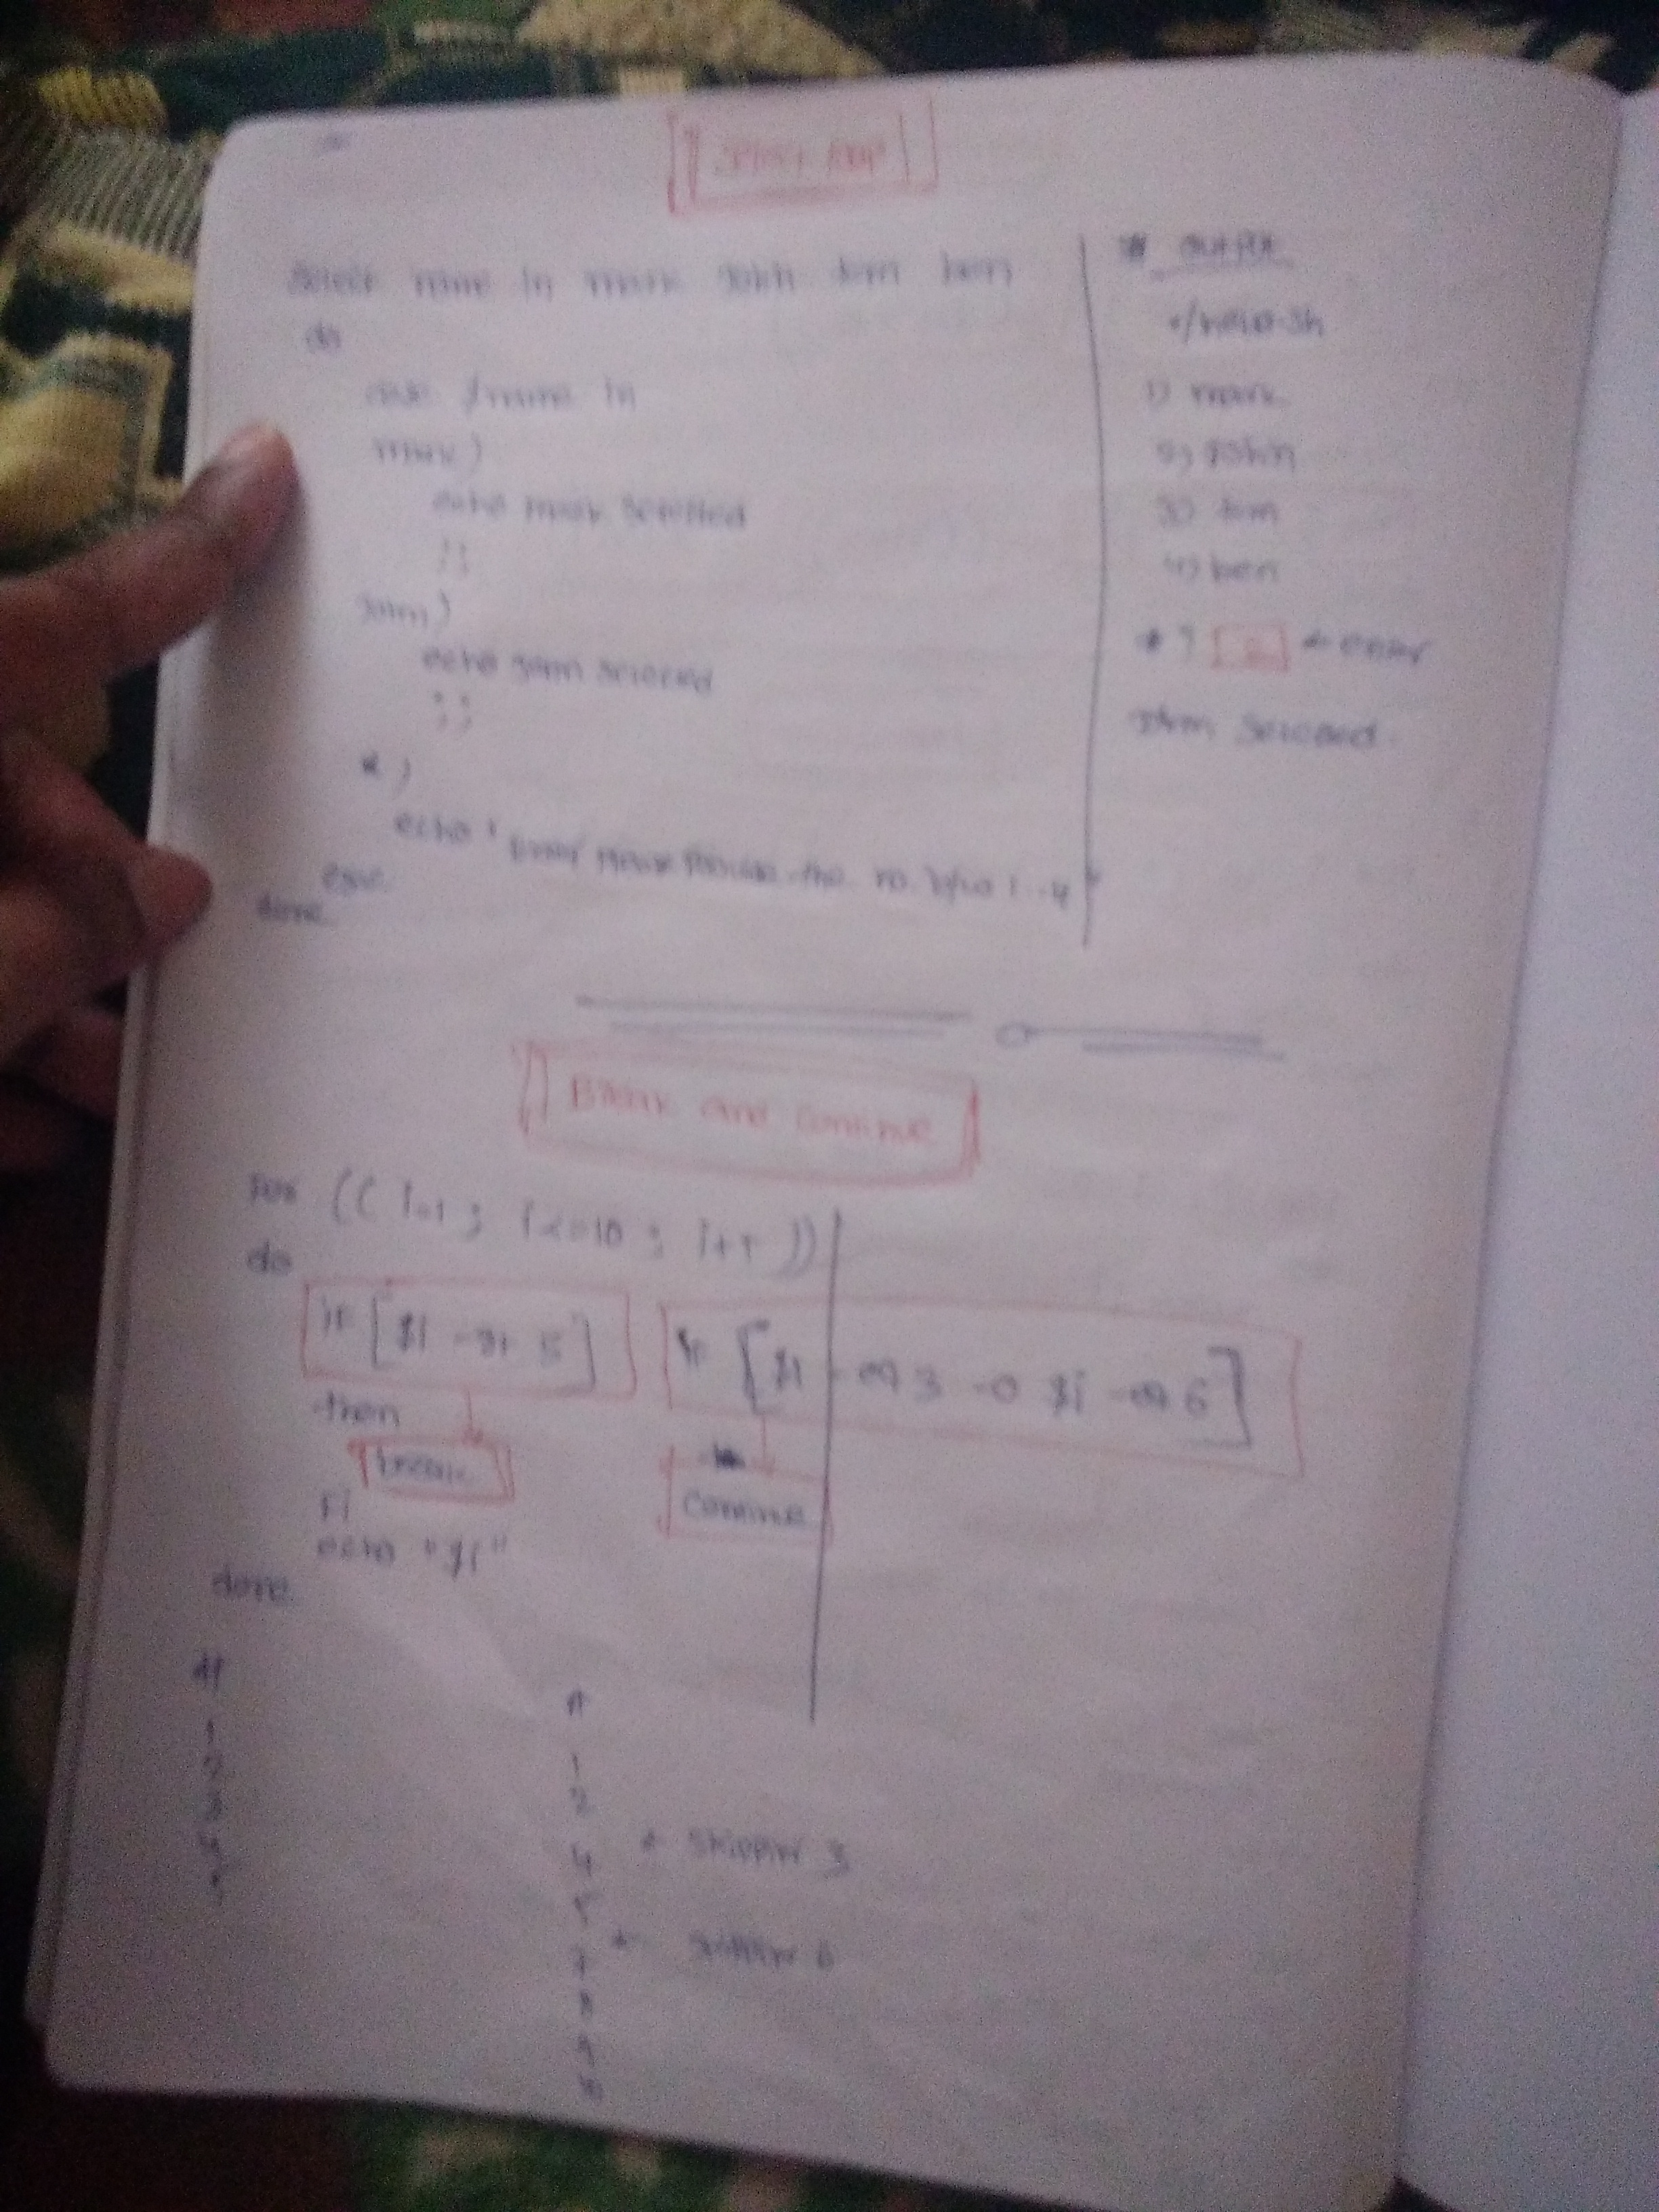 Select loop
select name in mark john tom ben
do
case $name in
mark)
echo mark selected
;;
john)
echo john selected
;;
*)
echo "Error please provide the no. b/w 1..4"
esac
done
# output
./hello.sh
1) mark
2) john
3) tom
4) ben
# ? 2 ← enter
john selected.
Break and continue
for (( i=1 ; i<=10 ; i++ ))
do
if [ $i -gt 5 ]
then
break
fi
echo "$i"
done
if [ $i -eq 3 -o $i -eq 6 ]
continue
#
1
2
3
4
5
#
1
2
4 ← skipping 3
5
7 ← skipping 6
8
9
10